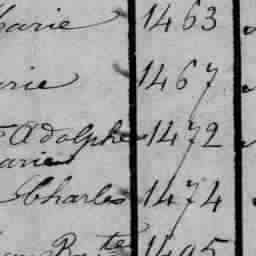 Marie 1463
Marie 1467
Adolphe 1472
Marie
Charles 1474
Bte 1495